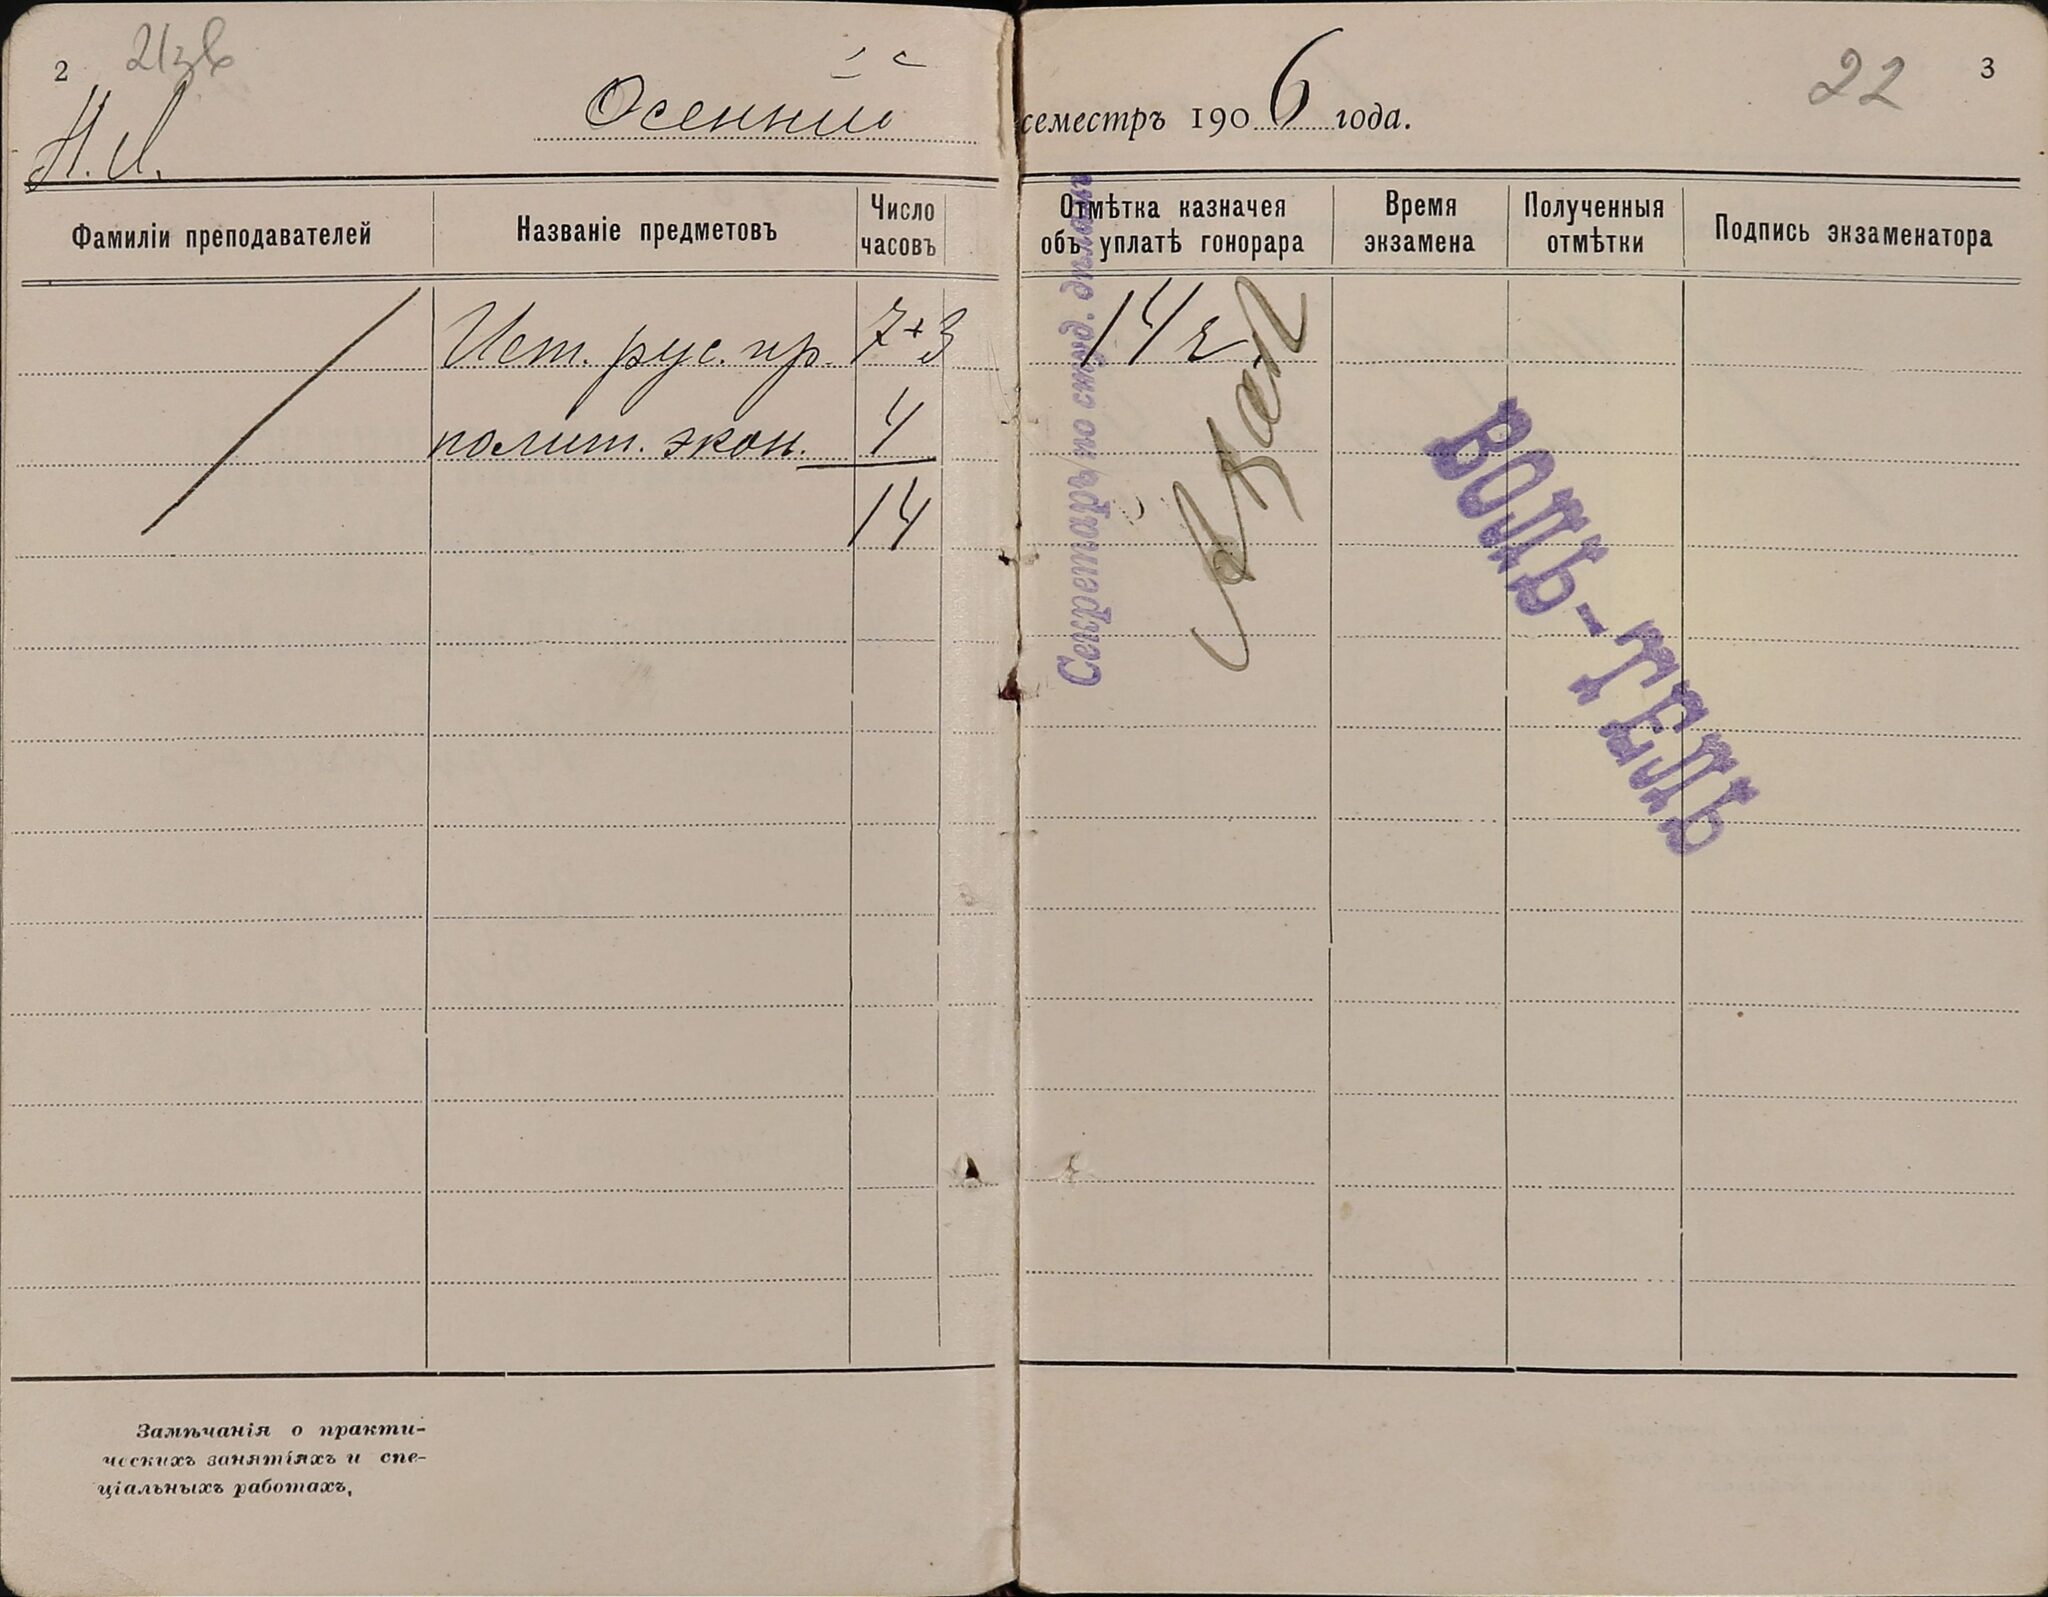 2
Осенній
семестръ 1906 года.
22
3
Н. И.
Фамиліи преподавателей
Названіе предметовъ
Число
часовъ
Отмѣтка казначея
объ уплатѣ гонорара
Время
экзамена
Полученныя
отмѣтки
Подпись экзаменатора
Ист. рус. пр. 7+3
полит. экон. 4
14
14 р
Секретарь по студ. дѣламъ
ВОЛЬ-ТЕЛЬ
Замѣчанія о практи-
ческихъ занятіяхъ и спе-
ціальныхъ работахъ.